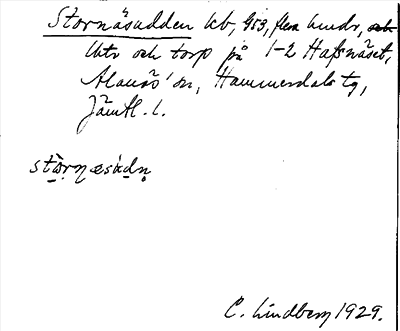 Stornäsudden kb, G13, flera hindr, och
lhtr och torp på 1-2 Hafsnäset,
Alanäs sn, Hammerdals tg,
Jämtl. l.
stòrnæsùdn̥
C. Lindberg 1929.